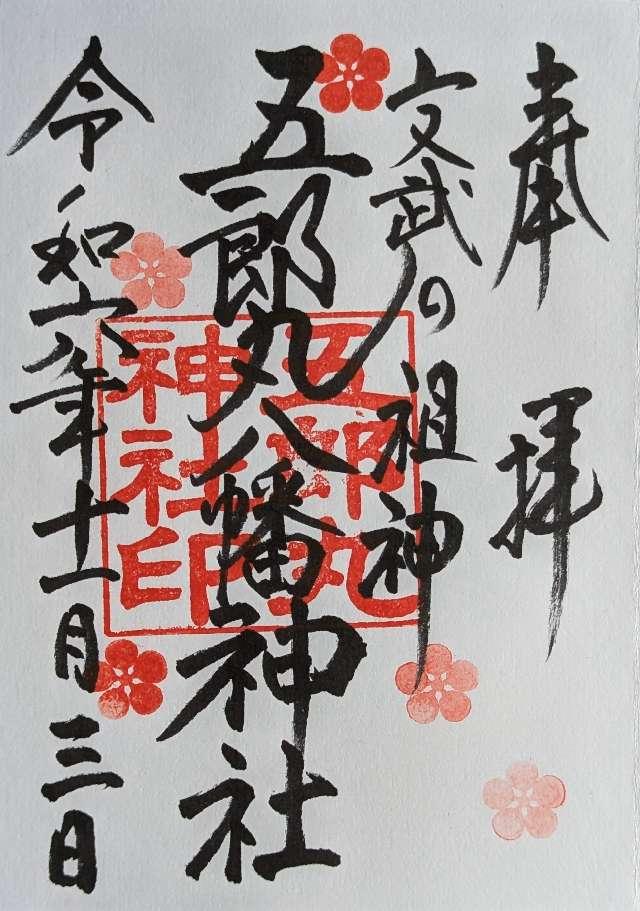 奉拝
文武の祖神
五郎丸八幡神社
令和六年十一月三日
五郎丸
神社印